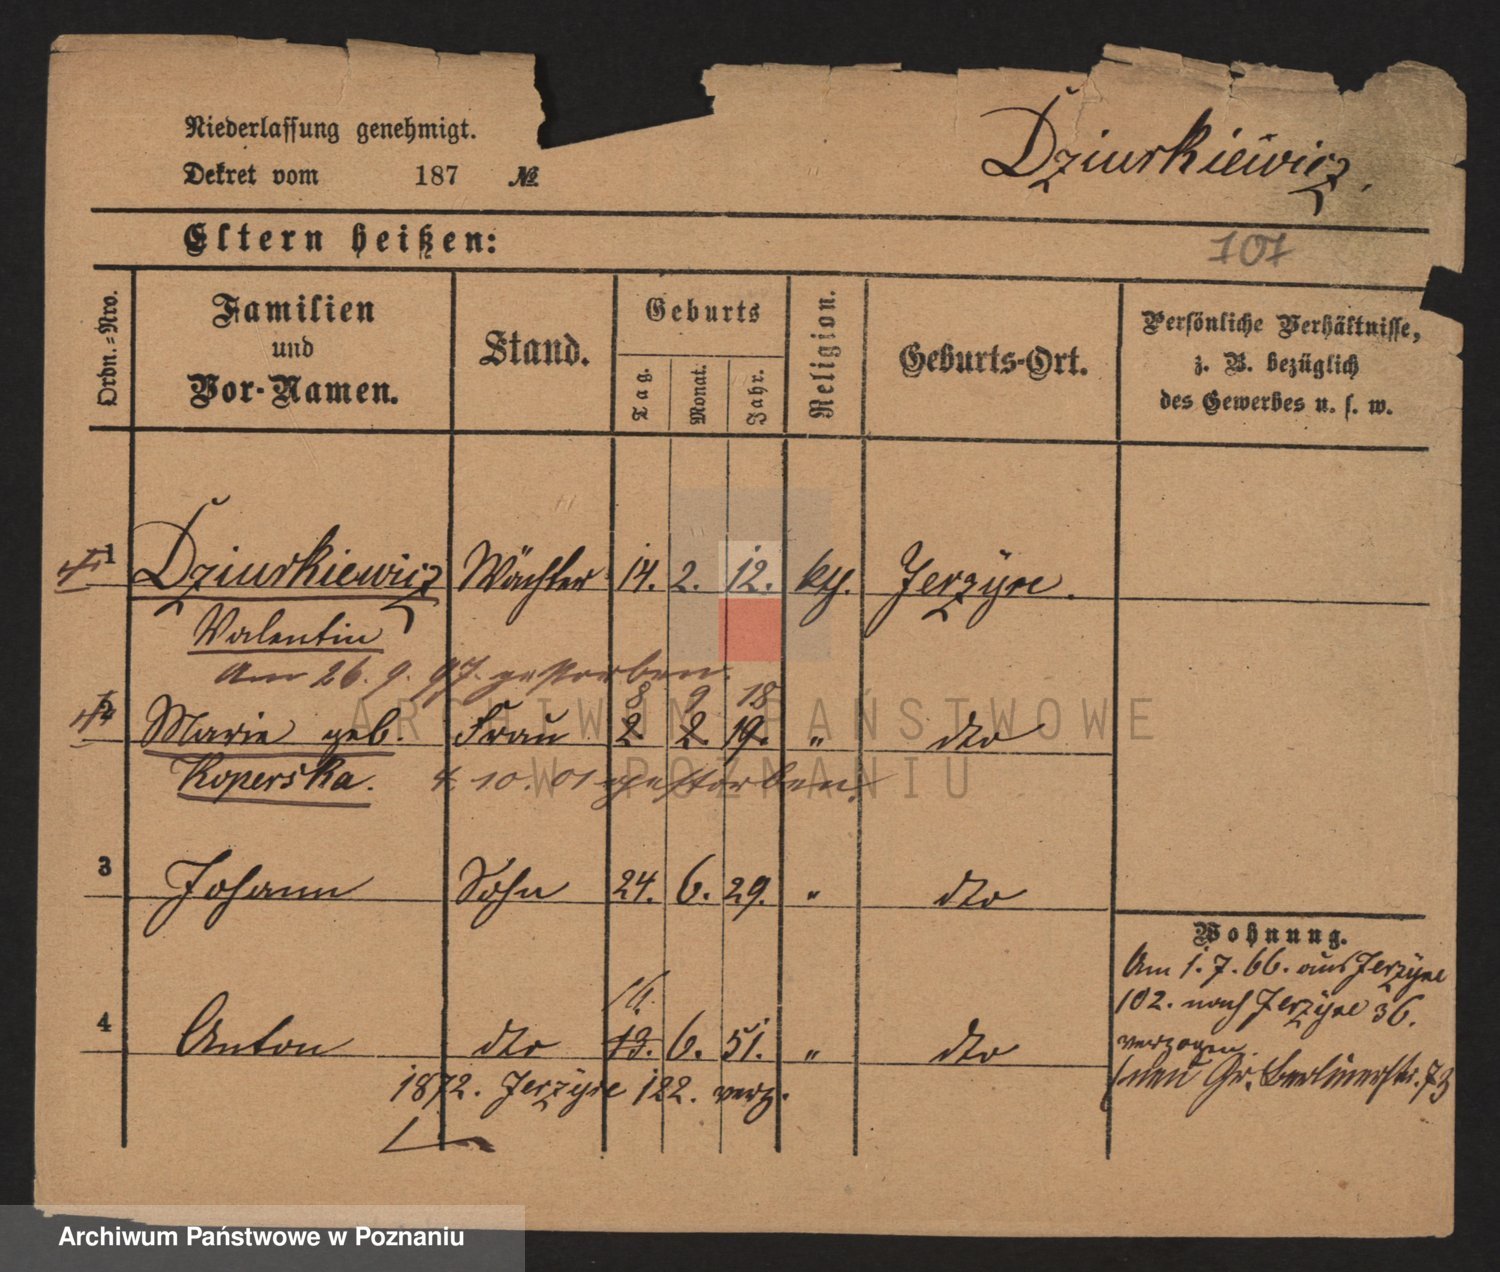 Niederlassung genehmigt.
Dekret vom 187 №
Dziurkiewicz.
Eltern heißen:
101
Ordn.-Nro.
Familien
und
Vor-Namen.
Stand.
Geburts
Tag.
Monat.
Jahr.
Religion.
Geburts-Ort.
Persönliche Verhältnisse,
z. B. bezüglich
des Gewerbes u. s. w.
1 Dziurkiewicz Wächter 14. 2. 12. kth. Jerzyce.
Valentin
Am 26. 9. 97. gestorben.
8 9 18
2 Marie geb. Frau 2 2. 19. " dto
Koperska. 4. 10. 01 gestorben.
3 Johann Sohn 24. 6. 29. " dto
16.
4 Anton dto 13. 6. 51. " dto
1872. Jerzyce 122. verz.
Wohnung.
Am 1. 7. 66. aus Jerzyce
102. nach Jerzyce 36.
verzogen.
neu Gr. Berlinerstr. 73
ARCHIWUM PAŃSTWOWE
W POZNANIU
Archiwum Państwowe w Poznaniu